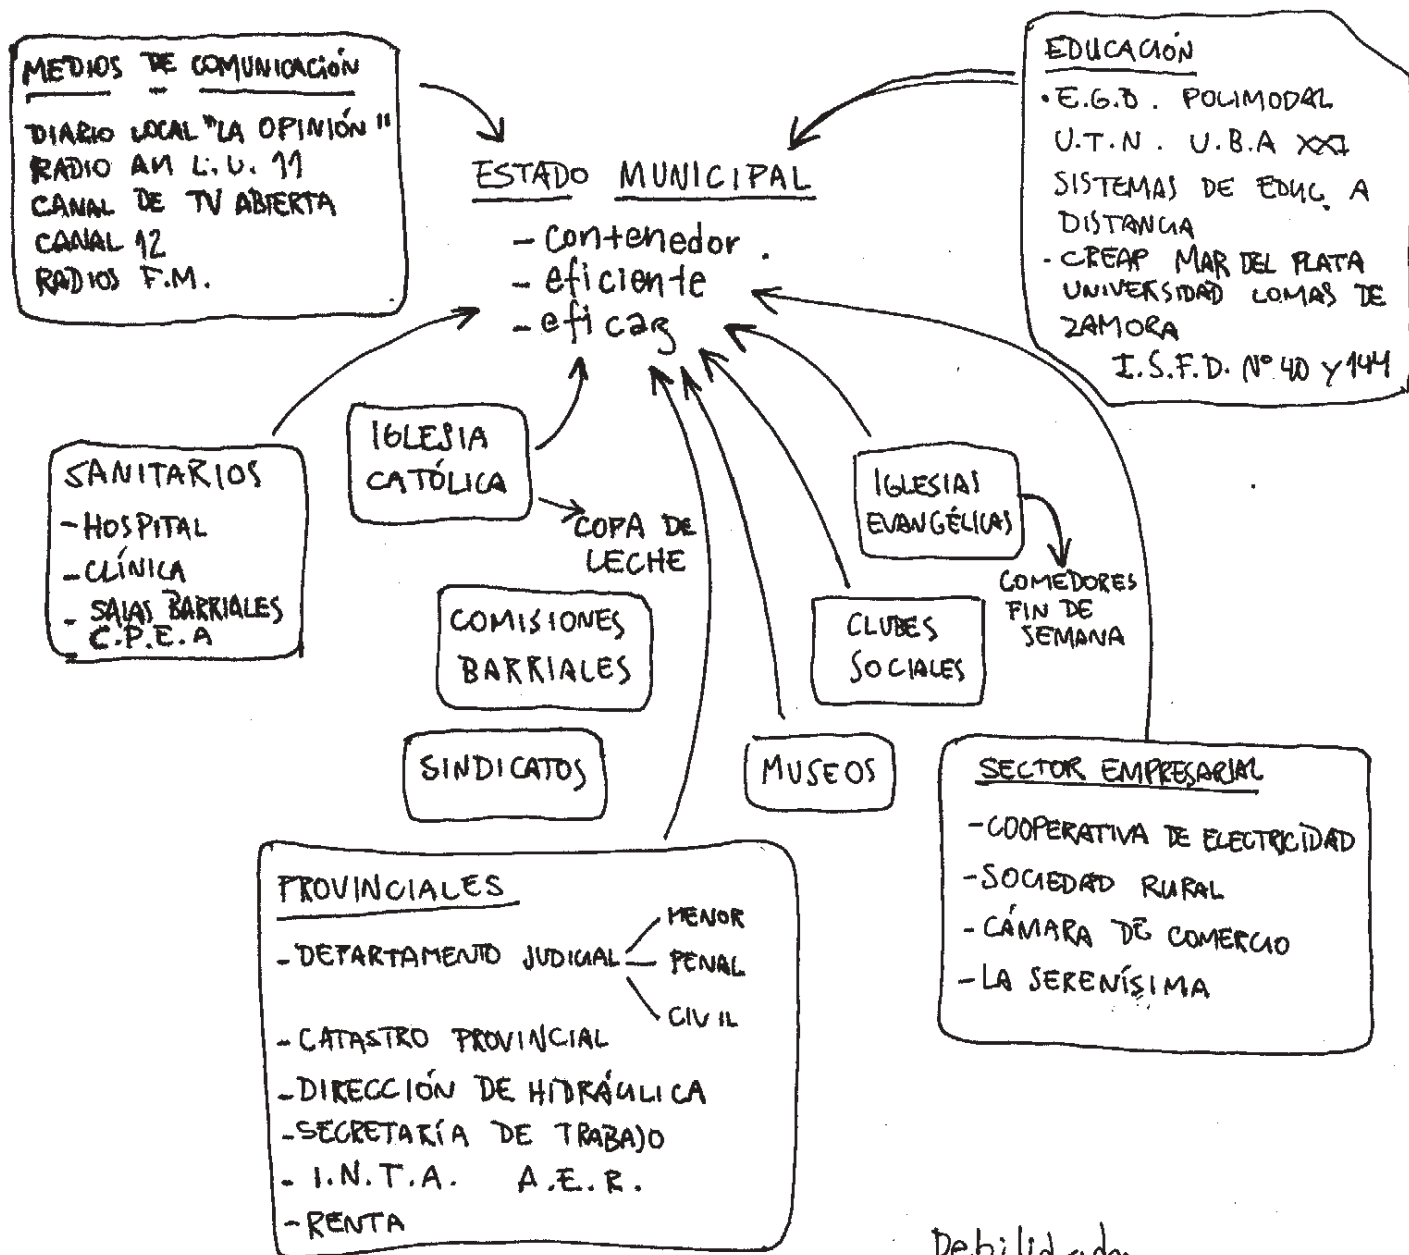 MEDIOS DE COMUNICACIÓN
DIARIO LOCAL "LA OPINIÓN"
RADIO AM L.U. 11
CANAL DE TV ABIERTA
CANAL 12
RADIOS F.M.
EDUCACIÓN
• E.G.B. POLIMODAL
U.T.N. U.B.A XXI
SISTEMAS DE EDUC. A
DISTANCIA
- CREAP MAR DEL PLATA
UNIVERSIDAD LOMAS DE
ZAMORA
I.S.F.D. Nº 40 y 144
ESTADO MUNICIPAL
- contenedor.
- eficiente
- eficaz
SANITARIOS
- HOSPITAL
- CLÍNICA
- SALAS BARRIALES
C.P.E.A
IGLESIA
CATÓLICA
COPA DE
LECHE
IGLESIAS
EVANGÉLICAS
COMEDORES
FIN DE
SEMANA
COMISIONES
BARRIALES
CLUBES
SOCIALES
SINDICATOS
MUSEOS
SECTOR EMPRESARIAL
- COOPERATIVA DE ELECTRICIDAD
- SOCIEDAD RURAL
- CÁMARA DE COMERCIO
- LA SERENÍSIMA
PROVINCIALES
- DEPARTAMENTO JUDICIAL
MENOR
PENAL
CIVIL
- CATASTRO PROVINCIAL
- DIRECCIÓN DE HIDRÁULICA
- SECRETARÍA DE TRABAJO
- I.N.T.A. A.E.R.
- RENTA